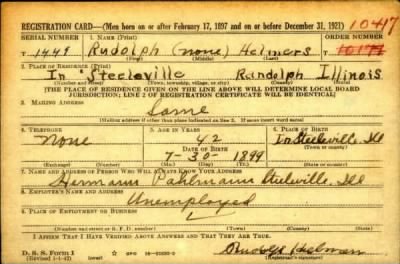 REGISTRATION CARD—(Men born on or after February 17, 1897 and on or before December 31, 1921) 1047
SERIAL NUMBER 1. NAME (Print) ORDER NUMBER
T 1449 Rudolph (none) Helmers 10177
(First) (Middle) (Last)
2. PLACE OF RESIDENCE (Print)
In Steeleville Randolph Illinois
(Number and street) (Town, township, village, or city) (County) (State)
[THE PLACE OF RESIDENCE GIVEN ON THE LINE ABOVE WILL DETERMINE LOCAL BOARD
JURISDICTION; LINE 2 OF REGISTRATION CERTIFICATE WILL BE IDENTICAL]
3. MAILING ADDRESS
Same
[Mailing address if other than place indicated on line 2. If same insert word same]
4. TELEPHONE 5. AGE IN YEARS 6. PLACE OF BIRTH
None 42 In Steeleville, Ill
DATE OF BIRTH
7-30-1899
(Exchange) (Number) (Mo.) (Day) (Yr.) (State or country)
7. NAME AND ADDRESS OF PERSON WHO WILL ALWAYS KNOW YOUR ADDRESS
Hermann Pahlmann Steeleville, Ill
8. EMPLOYER'S NAME AND ADDRESS
Unemployed
9. PLACE OF EMPLOYMENT OR BUSINESS
(Number and street or R. F. D. number) (Town) (County) (State)
I AFFIRM THAT I HAVE VERIFIED ABOVE ANSWERS AND THAT THEY ARE TRUE.
D. S. S. Form 1
(Revised 1-1-42) (over)